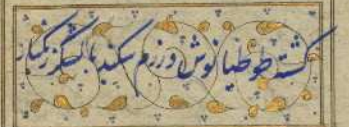 کشته طوطیانوش در رزم سکندر با لشکر زنگبار